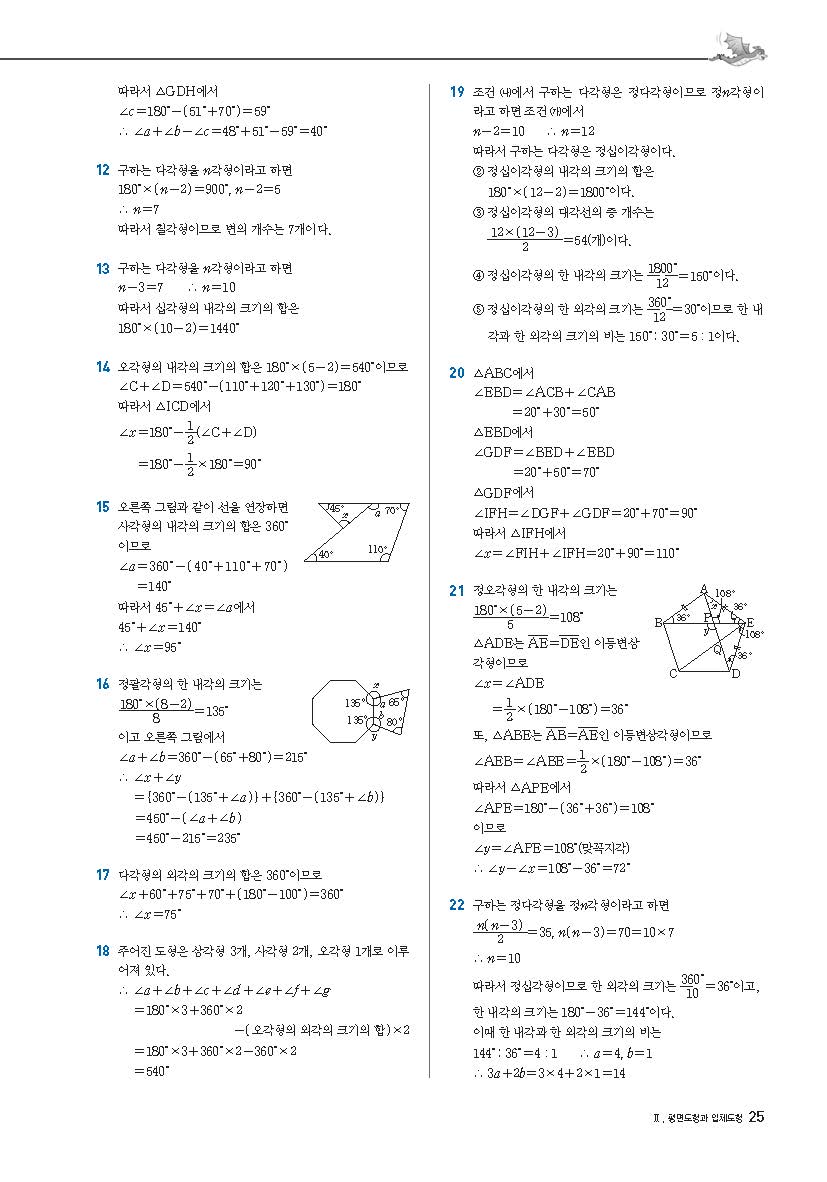 따라서 △GDH에서
∠c=180°-(51°+70°)=59°
∴ ∠a+∠b-∠c=48°+51°-59°=40°
12 구하는 다각형을 n각형이라고 하면
180°×(n-2)=900°, n-2=5
∴ n=7
따라서 칠각형이므로 변의 개수는 7개이다.
13 구하는 다각형을 n각형이라고 하면
n-3=7 ∴ n=10
따라서 십각형의 내각의 크기의 합은
180°×(10-2)=1440°
14 오각형의 내각의 크기의 합은 180°×(5-2)=540°이므로
∠C+∠D=540°-(110°+120°+130°)=180°
따라서 △ICD에서
∠x=180°-1/2(∠C+∠D)
=180°-1/2×180°=90°
15 오른쪽 그림과 같이 선을 연장하면
사각형의 내각의 크기의 합은 360°
이므로
∠a=360°-(40°+110°+70°)
=140°
따라서 45°+∠x=∠a에서
45°+∠x=140°
∴ ∠x=95°
45° x a 70°
40° 110°
16 정팔각형의 한 내각의 크기는
180°×(8-2)/8=135°
이고 오른쪽 그림에서
∠a+∠b=360°-(65°+80°)=215°
∴ ∠x+∠y
={360°-(135°+∠a)}+{360°-(135°+∠b)}
=450°-(∠a+∠b)
=450°-215°=235°
x
135° a 65°
135° b 80°
y
17 다각형의 외각의 크기의 합은 360°이므로
∠x+60°+75°+70°+(180°-100°)=360°
∴ ∠x=75°
18 주어진 도형은 삼각형 3개, 사각형 2개, 오각형 1개로 이루
어져 있다.
∴ ∠a+∠b+∠c+∠d+∠e+∠f+∠g
=180°×3+360°×2
-(오각형의 외각의 크기의 합)×2
=180°×3+360°×2-360°×2
=540°
19 조건 ㈏에서 구하는 다각형은 정다각형이므로 정n각형이
라고 하면 조건 ㈎에서
n-2=10 ∴ n=12
따라서 구하는 다각형은 정십이각형이다.
② 정십이각형의 내각의 크기의 합은
180°×(12-2)=1800°이다.
③ 정십이각형의 대각선의 총 개수는
12×(12-3)/2=54(개)이다.
④ 정십이각형의 한 내각의 크기는 1800°/12=150°이다.
⑤ 정십이각형의 한 외각의 크기는 360°/12=30°이므로 한 내
각과 한 외각의 크기의 비는 150° : 30°=5 : 1이다.
20 △ABC에서
∠EBD=∠ACB+∠CAB
=20°+30°=50°
△EBD에서
∠GDF=∠BED+∠EBD
=20°+50°=70°
△GDF에서
∠IFH=∠DGF+∠GDF=20°+70°=90°
따라서 △IFH에서
∠x=∠FIH+∠IFH=20°+90°=110°
21 정오각형의 한 내각의 크기는
180°×(5-2)/5=108°
△ADE는 AE=DE인 이등변삼
각형이므로
∠x=∠ADE
=1/2×(180°-108°)=36°
또, △ABE는 AB=AE인 이등변삼각형이므로
∠AEB=∠ABE=1/2×(180°-108°)=36°
따라서 △APE에서
∠APE=180°-(36°+36°)=108°
이므로
∠y=∠APE=108°(맞꼭지각)
∴ ∠y-∠x=108°-36°=72°
A 108°
x 36°
B 36° P E
y 108°
Q 36°
C D
22 구하는 정다각형을 정n각형이라고 하면
n(n-3)/2=35, n(n-3)=70=10×7
∴ n=10
따라서 정십각형이므로 한 외각의 크기는 360°/10=36°이고,
한 내각의 크기는 180°-36°=144°이다.
이때 한 내각과 한 외각의 크기의 비는
144° : 36°=4 : 1 ∴ a=4, b=1
∴ 3a+2b=3×4+2×1=14
Ⅱ. 평면도형과 입체도형 25